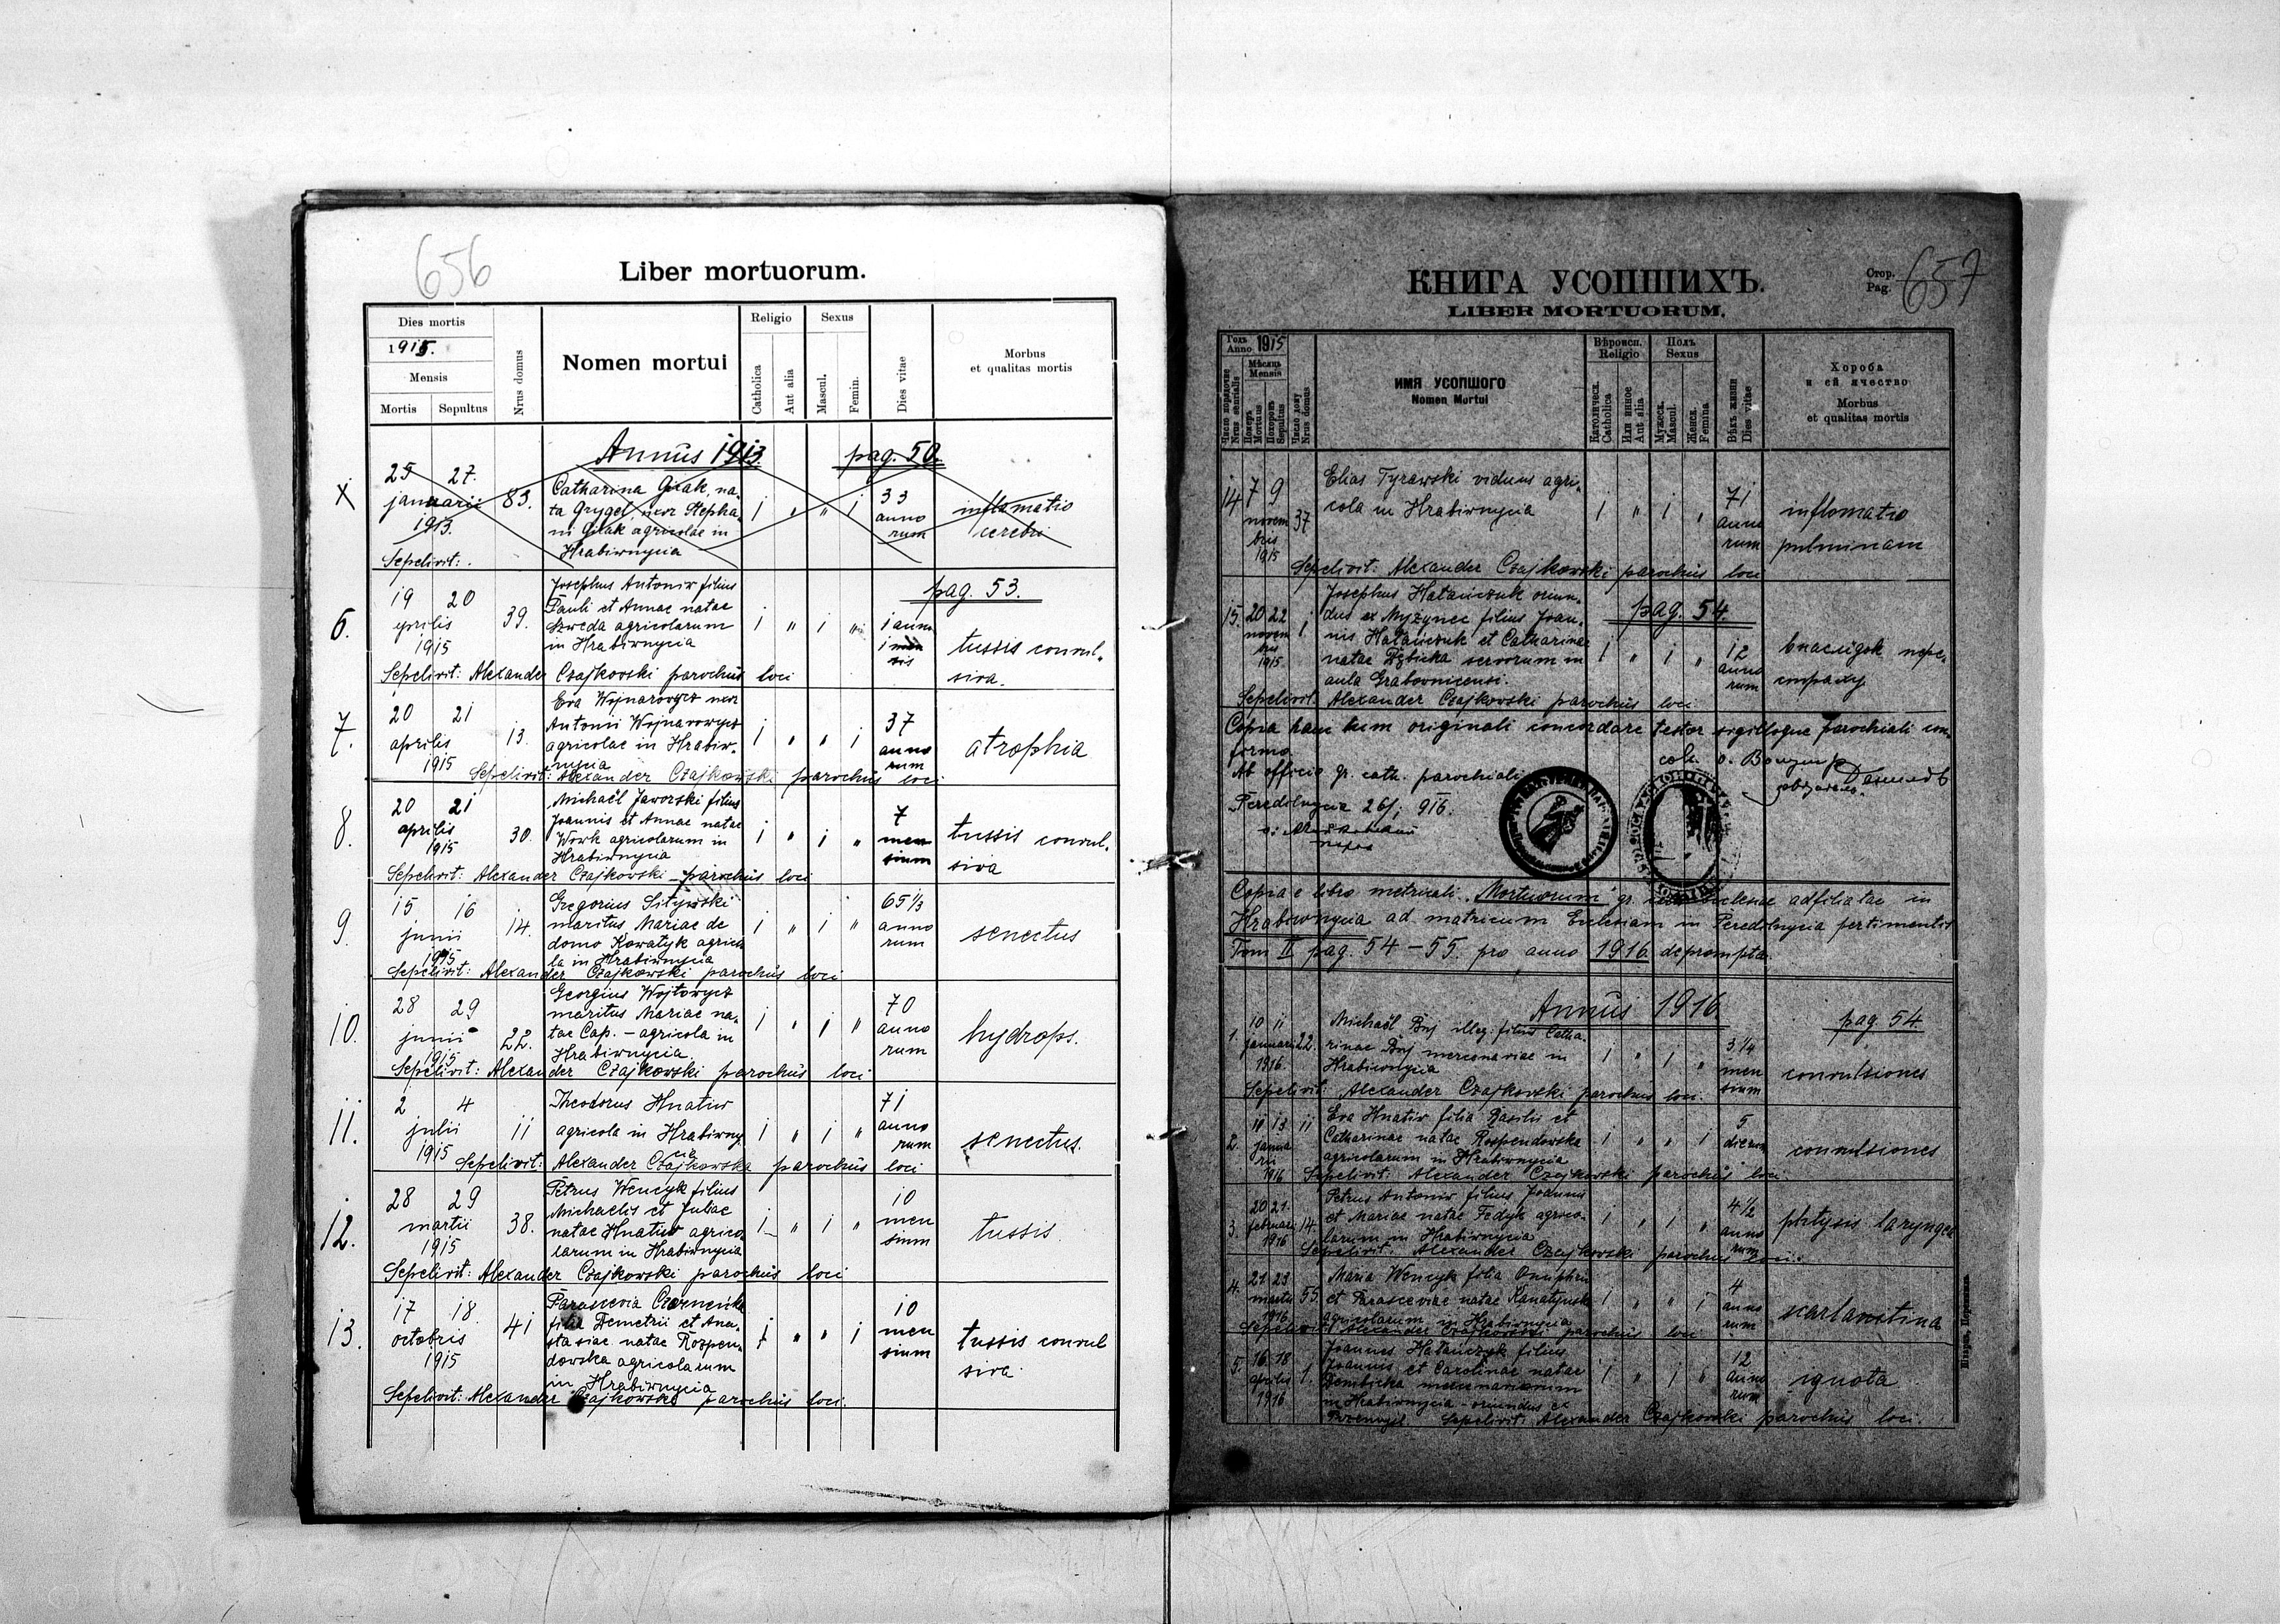 656
Liber mortuorum.
Dies mortis
1915.
Mensis
Mortis Sepultus
Nrus domus
Nomen mortui
Religio
Catholica
Aut alia
Sexus
Mascul.
Femin.
Dies vitae
Morbus
et qualitas mortis
Annus 1913. pag. 50.
X
25 27.
januarii
1913.
83.
Catharina Gziak, na-
ta Grygel, uxor Stepha-
ni Gziak agricolae in
Hrabiwnycia
1 " " 1
33
anno
rum
inflamatio
cerebri
Sepelivit:
pag. 53.
6.
19 20
aprilis
1915
39.
Josephus Antoniw filius
Pauli et Annae natae
Szweda agricolarum
in Hrabiwnycia
1 " 1 "
1 anni
1 men
sis
tussis convul-
siva.
Sepelivit: Alexander Czajkovski parochus loci
7.
20 21
aprilis
1915
13.
Eva Wojnarowycz uxor
Antonii Wojnarowycz
agricolae in Hrabiw-
nycia
1 " " 1
37
anno
rum
atrophia
Sepelivit: Alexander Czajkowski parochus loci
8.
20 21
aprilis
1915
30.
Michaël Jaworski filius
Joannis et Annae natae
Wowk agricolarum in
Hrabiwnycia
1 " 1 "
7
men
sium
tussis convul-
siva
Sepelivit: Alexander Czajkowski parochus loci
9.
15 16
junii
1915
14.
Gregorius Sitywski
maritus Mariae de
domo Kowatyk agrico
la in Hrabiwnycia
1 " 1 "
65 1/3
anno
rum
senectus
Sepelivit: Alexander Czajkowski parochus loci
10.
28 29
junii
1915
22.
Georgius Wojtowycz
maritus Mariae na-
tae Cap. – agricola in
Hrabiwnycia.
1 " 1 "
70
anno
rum
hydrops.
Sepelivit: Alexander Czajkowski parochus loci
11.
2 4
julii
1915
11
Theodorus Hnatiw
agricola in Hrabiwny
cia
1 " 1 "
71
anno
rum
senectus.
Sepelivit: Alexander Czajkowska parochus loci
12.
28 29
martii
1915
38.
Petrus Wencyk filius
Michaelis et Juliae
natae Hnatiw agrico
larum in Hrabiwnycia
1 " 1 "
10
men
sium
tussis
Sepelivit: Alexander Czajkowski parochus loci
13.
17 18.
octobris
1915
41
Parascevia Czerneńka
filia Demetrii et Ana-
stasiae natae Rozpen-
dowska agricolarum
in Hrabiwnycia
1 " " 1
10
men
sium
tussis convul
siva
Sepelivit: Alexander Czajkowski parochus loci.
КНИГА УСОПШИХЪ.
LIBER MORTUORUM.
Стор.
Pag. 657
Годъ
Anno 1915
Мѣсяць
Mensis
Число порядочне
Nrus serialis
Померъ
Mortus
Похоронъ
Sepultus
Число дому
Nrus domus
ИМЯ УСОПШОГО
Nomen Mortui
Вѣроисп.
Religio
Католическ.
Catholica
Или иное
Aut alia
Полъ
Sexus
Мужеск.
Mascul.
Женск.
Femina
Вѣкъ жизни
Dies vitae
Хороба
и єй ячество
Morbus
et qualitas mortis
14
7 9
novem
bris
1915
37
Elias Tyrawski viduus agri-
cola in Hrabiwnycia
1 " 1 "
71
anno
rum
inflamatio
pulminam
Sepelivit: Alexander Czajkowski parochus loci
pag. 54.
15.
20 22
novem
bris
1915.
1
Josephus Hatańczuk oriun-
dus ex Myżynec filius Joan-
nis Hatańczuk et Catharinae
natae Dębicka servorum in
aula Grabownicensi.
1 " 1 "
12
anno
rum
внаслїдок пере-
страху
Sepelivit: Alexander Czajkowski parochus loci
Copia hanc cum originali concordare testor sigilloque parochiali con-
firmo.
Ab officio gr. cath. parochiali
Peredilnycia 26/1 916.
Copia e libro metricali "Mortuorum" gr. cath. ecclesiae adfiliatae in
Hrabiwnycia ad matricem Ecclesiam in Peredilnycia pertinentis
Tom II pag. 54 – 55. pro anno 1916 deprompta.
Annus 1916
pag 54.
1.
10 11
januarii
1916.
22.
Michaël Buj illeg. filius Catha-
rinae Buj mercenariae in
Hrabiwnycia
1 " 1 "
3 1/4
men
sium
convulsiones
Sepelivit: Alexander Czajkowski parochus loci.
2.
11 13
janua
rii
1916
11
Eva Hnatiw filia Basilii et
Catharinae natae Rospendowska
agricolarum in Hrabiwnycia
1 " " 1
5
dierum
convulsiones
Sepelivit: Alexander Czajkowski parochus loci
3.
20 21.
februarii
1916
14.
Petrus Antoniw filius Joannis
et Mariae natae Fedyk agrico-
larum in Hrabiwnycia
1 " 1 "
4 1/2
anno
rum
phtysis laryngea
Sepelivit: Alexander Czajkowski parochus loci.
4.
21 23
martii
1916
55
Maria Wencyk filia Onuphrii
et Parasceviae natae Kanatynska
agricolarum in Hrabiwnycia
1 " " 1
4
anno
rum
scarlanatina
Sepelivit: Alexander Czajkowski parochus loci
5.
16 18
aprilis
1916
1.
Joannes Hatańczyk filius
Joannis et Carolinae natae
Dembicka mercenariorum
in Hrabiwnycia – oriundus ex
1 " 1 "
12
anno
rum
ignota
Sepelivit: Alexander Czajkowski parochus loci.